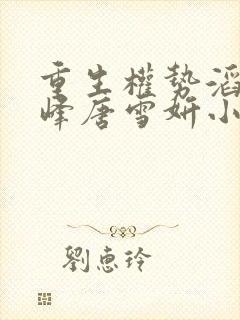 重生權勢滔
峰唐雪妍小
劉惠玲